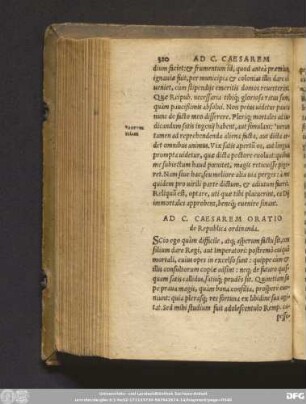 320 AD C. CAESAREM
dium fuerint: & frumentum id, quod antea præmium
ignauiæ fuit, per municipia & colonias illis dare con
ueniet, cum stipendijs emeritis domos reuerterint.
Quæ Reipub. necessaria tibiq; gloriosa ratus sum,
quàm paucissimis absolui. Non peius uidetur pauca
nunc de facto meo disserere. Pleriq; mortales ad iu
dicandum satis ingenij habent, aut simulant: uerùm
enim ad reprehendenda aliena facta, aut dicta ar
det omnibus animus. Vix satis apertum os, aut lingua
prompta uidetur, quæ dicta pectore euoluat: quibus
me subiectum haud pœnitet, magis reticuisse piget.
Nam siue hac, seu meliore alia uia perges: à me
quidem pro uirili parte dictum, & adiutum fuerit.
Reliquum est, optare, uti quæ tibi placuerint, ea Dij
immortales approbent, beneq; euenire sinant.
AD C. CAESAREM ORATIO
de Republica ordinanda.
SCio ego quàm difficile, atq; asperum factu sit, con
silium dare Regi, aut imperatori: postremò cuiquam
mortali, cuius opes in excelso sunt: quippe cum &
illis consultorum copiæ adsint: neq; de futuro quis
quam satis callidus, satisq; prudens sit. Quinetiam sæ
pe praua magis, quàm bona consilia, prosperè eue
niunt: quia plerasq; res fortuna ex libidine sua agi
tat. Sed mihi studium fuit adolescentulo Remp. ca